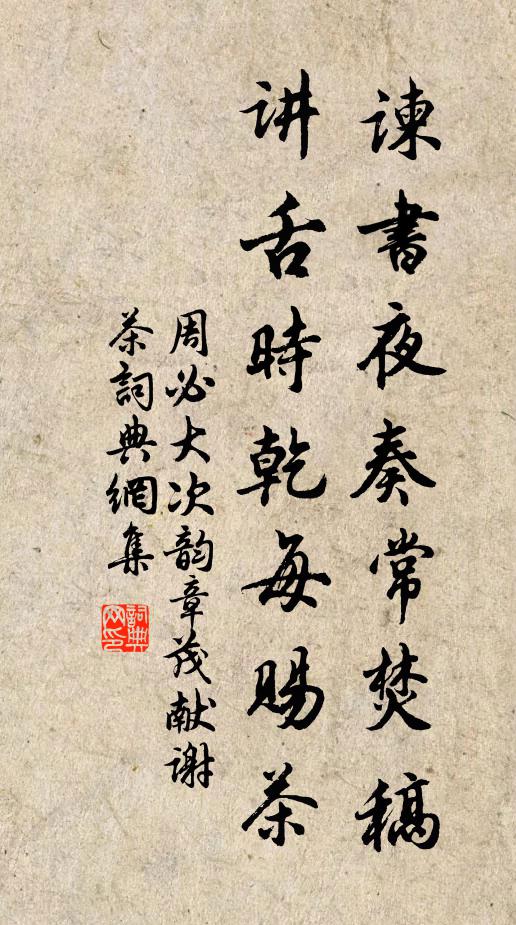 谏書夜奏常焚稿
讲舌時乾每赐茶
周必大次韵章茂献谢
茶詞典網集
詞典网印